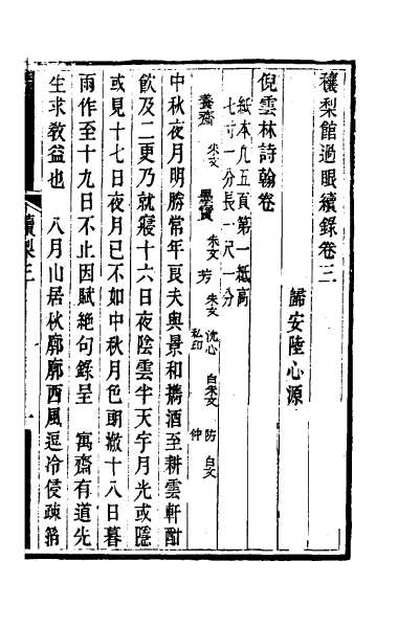 穰梨館過眼續錄卷三
歸安陸心源
倪雲林詩翰卷
紙本凡五頁第一紙高
七寸一分長一尺一分
養齋 朱文 墨寶 朱文 芳 朱文 沈心私印 白朱文 防仲 白文
中秋夜月明勝常年良夫與景和攜酒至耕雲軒酣
飲及二更乃就寢十六日夜陰雲半天宇月光或隱
或見十七日夜月已不如中秋月色明澈十八日暮
雨作至十九日不止因賦絶句錄呈 寓齋有道先
生求敎益也 八月山居秋廓廓西風逗冷侵疎箔
續梨三